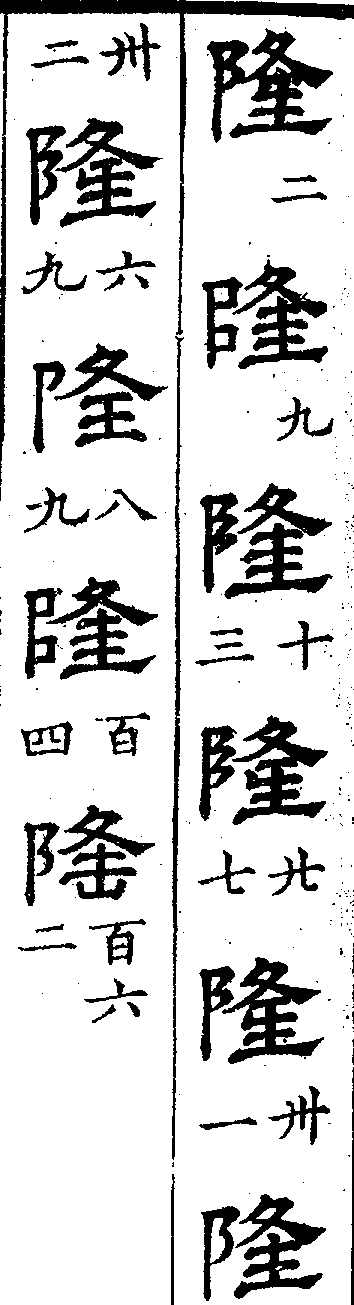 隆二隆九隆十三隆廿七隆卅一隆
卅二隆六九隆八九隆百四隆百六二